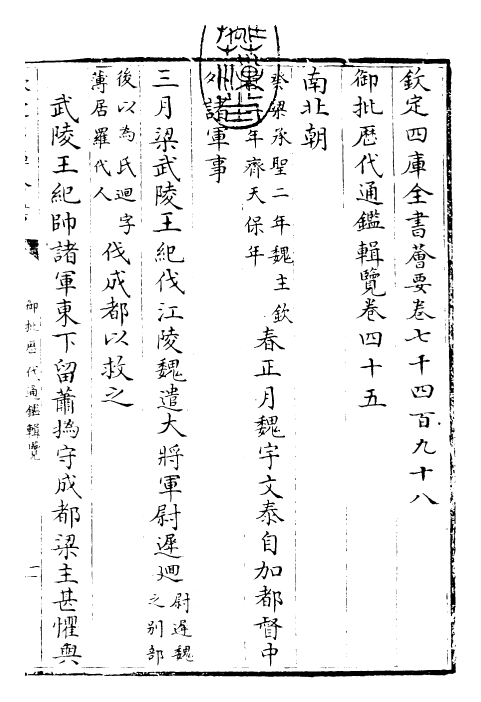 欽定四庫全書薈要卷七千四百九十八
御批歷代通鑑輯覽卷四十五
南北朝
癸梁承聖二年魏主欽
年齊天保年
春正月魏宇文泰自加都督中
外諸軍事
三月梁武陵王紀伐江陵魏遣大將軍尉遲迥
尉遲魏
之别部
後以為氏迥字
薄居羅代人
伐成都以救之
武陵王紀帥諸軍東下留蕭撝守成都梁主甚懼與
御批歷代通鑑輯覽